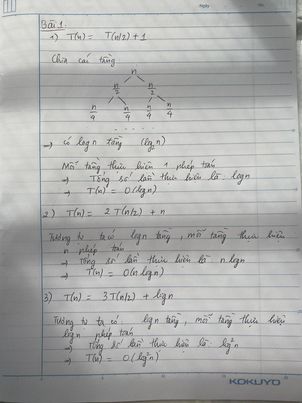 Bài 1:
1) T(n) = T(n/2) + 1
Chia các tầng
n
n/2 n/2
n/4 n/4 n/4 n/4
. . . . .
→ có logn tầng (log₂n)
Mỗi tầng thực hiện 1 phép toán
→ Tổng số lần thực hiện là logn
→ T(n) = O(logn)
2) T(n) = 2T(n/2) + n
Tương tự ta có logn tầng, mỗi tầng thực hiện
n phép toán
→ Tổng số lần thực hiện là n.logn
→ T(n) = O(n logn)
3) T(n) = 3T(n/2) + logn
Tương tự ta có: logn tầng, mỗi tầng thực hiện
logn phép toán
→ Tổng số lần thực hiện là: log²n
→ T(n) = O(log²n)
KOKUYO